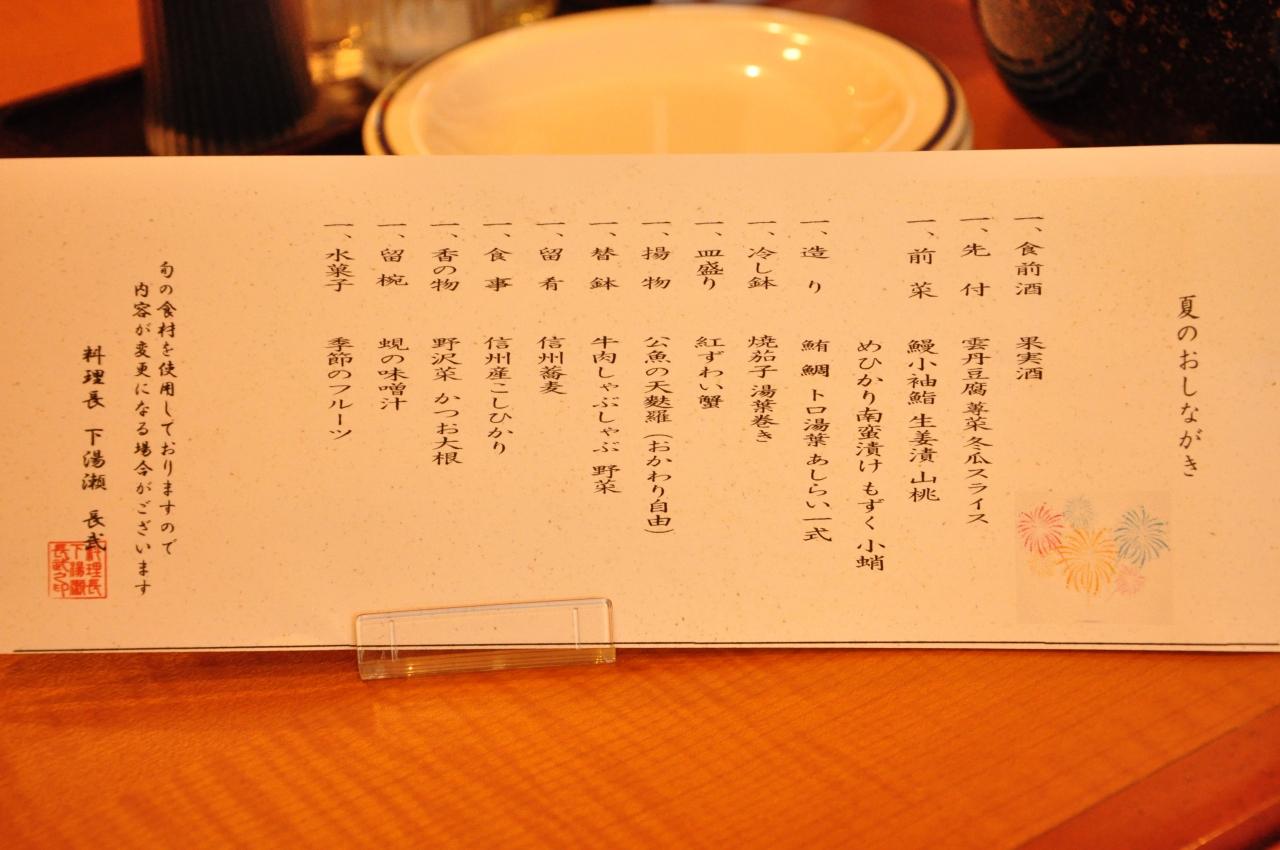 夏のおしながき
一、食前酒 果実酒
一、先付 雲丹豆腐 蓴菜 冬瓜スライス
一、前菜 鰻小袖鮨 生姜漬 山桃
めひかり南蛮漬け もずく 小蛸
一、造り 鮪 鯛 トロ湯葉 あしらい一式
一、冷し鉢 焼茄子 湯葉巻き
一、皿盛り 紅ずわい蟹
一、揚物 公魚の天麩羅（おかわり自由）
一、替鉢 牛肉しゃぶしゃぶ 野菜
一、留肴 信州蕎麦
一、食事 信州産こしひかり
一、香の物 野沢菜 かつお大根
一、留椀 蜆の味噌汁
一、水菓子 季節のフルーツ
旬の食材を使用しておりますので
内容が変更になる場合がございます
料理長 下湯瀬 長武
料理長
下湯瀬
長武之印